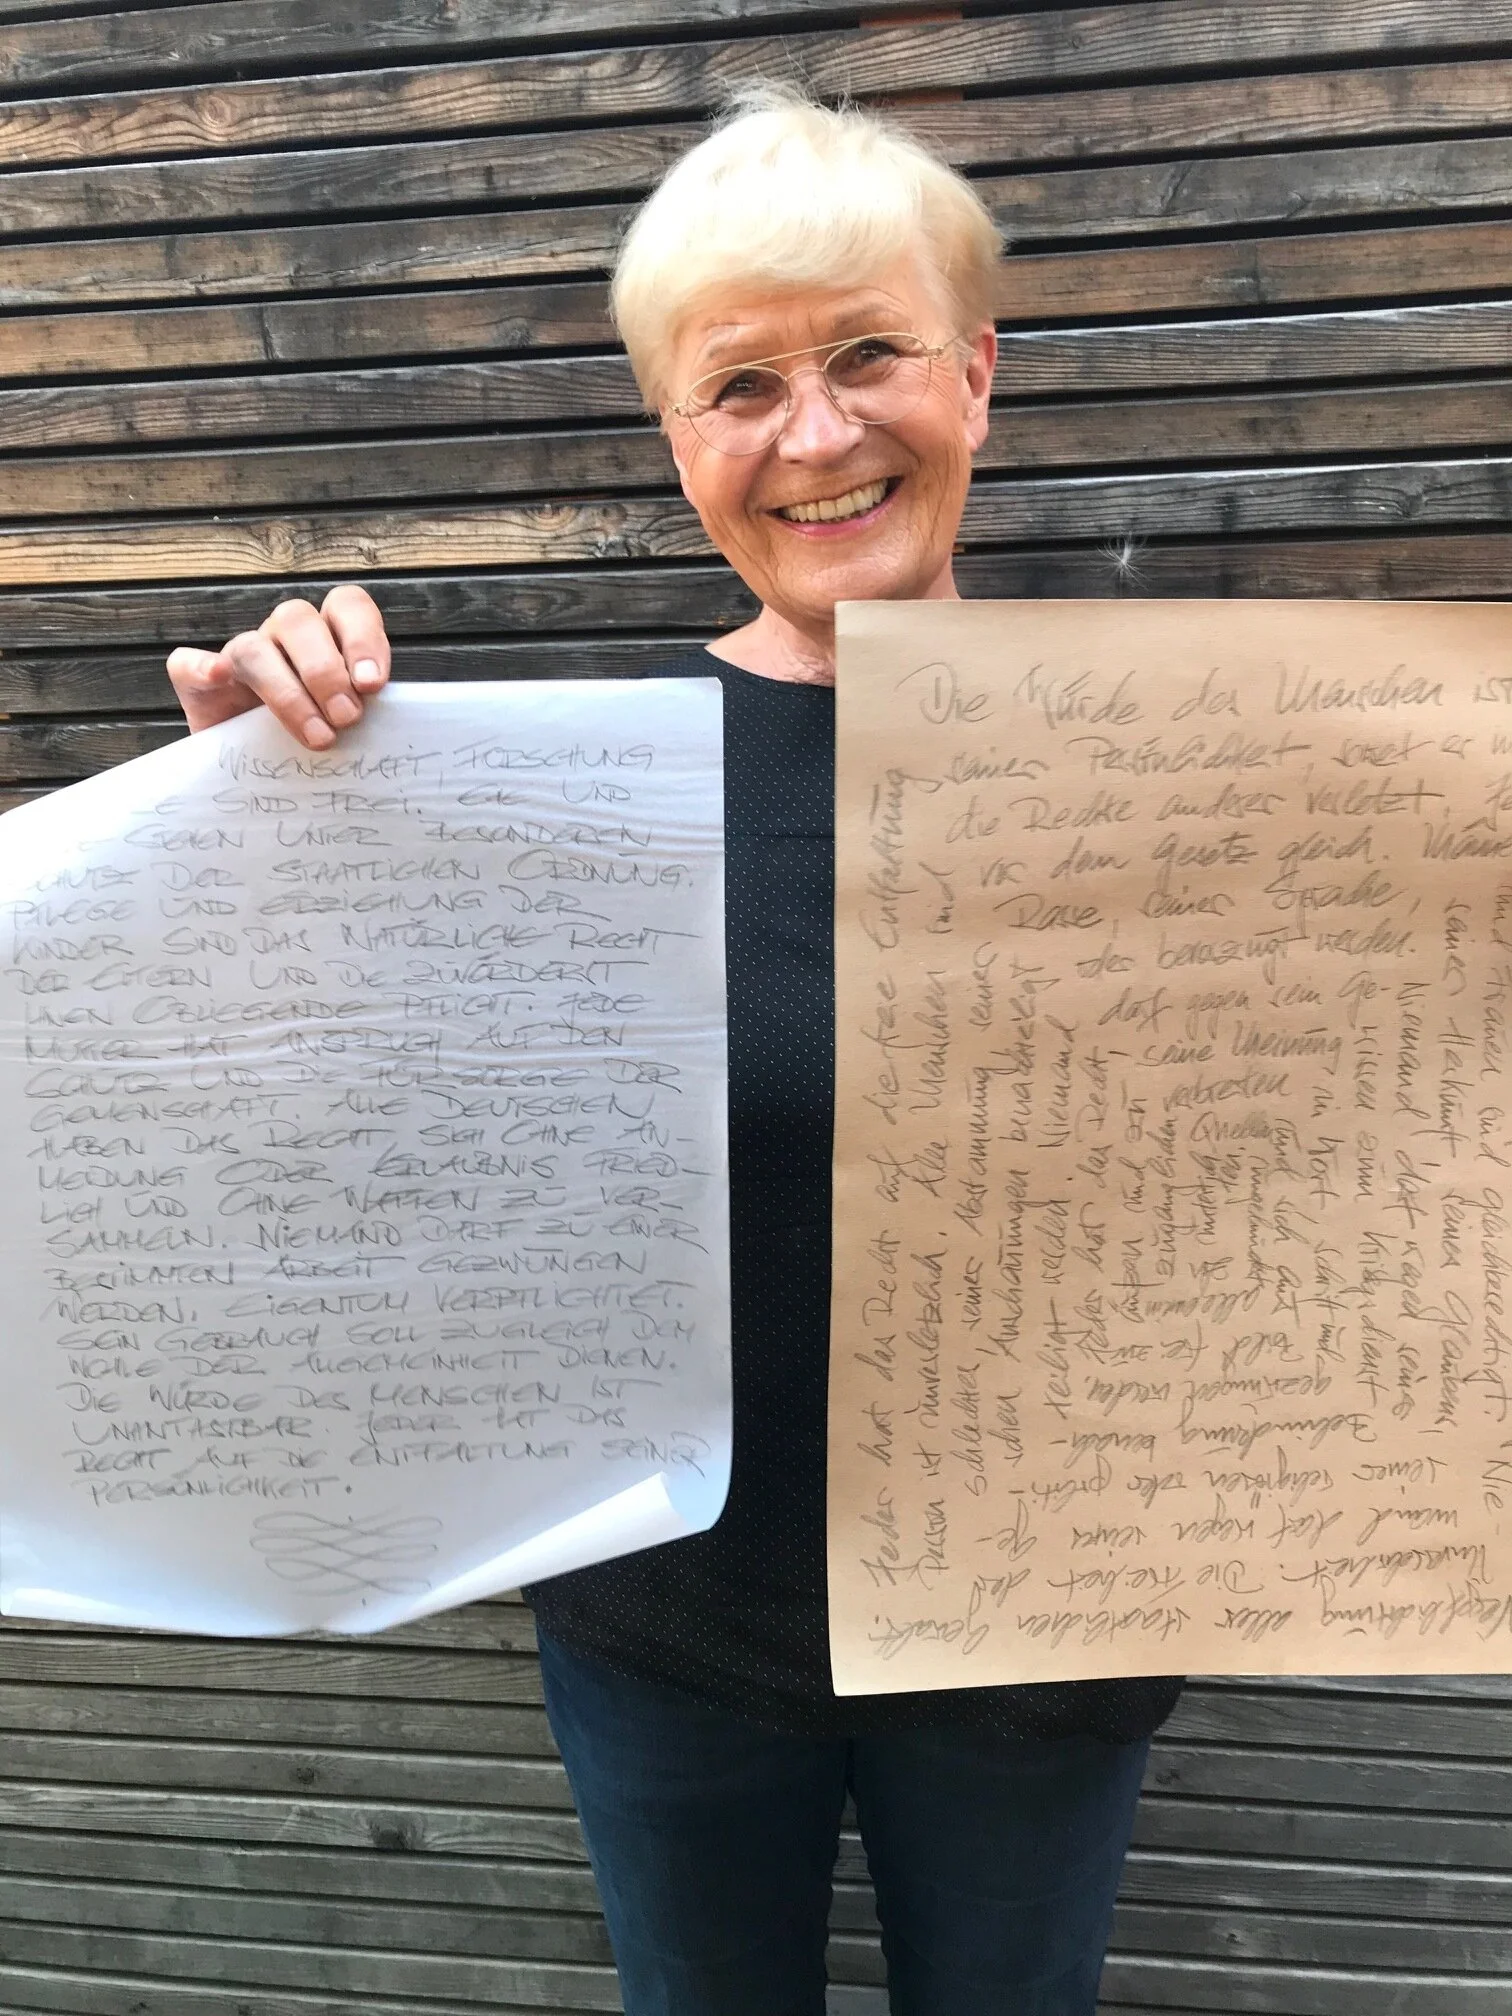 WISSENSCHAFT, FORSCHUNG
SIND FREI. EHE UND
UNTER BESONDEREN
SCHUTZ DER STAATLICHEN ORDNUNG.
PFLEGE UND ERZIEHUNG DER
KINDER SIND DAS NATÜRLICHE RECHT
DER ELTERN UND DIE ZUVÖRDERST
IHNEN OBLIEGENDE PFLICHT. JEDE
MUTTER HAT ANSPRUCH AUF DEN
SCHUTZ UND DIE FÜRSORGE DER
GEMEINSCHAFT. ALLE DEUTSCHEN
HABEN DAS RECHT, SICH OHNE AN-
MELDUNG ODER ERLAUBNIS FRIED-
LICH UND OHNE WAFFEN ZU VER-
SAMMELN. NIEMAND DARF ZU EINER
BESTIMMTEN ARBEIT GEZWUNGEN
WERDEN. EIGENTUM VERPFLICHTET.
SEIN GEBRAUCH SOLL ZUGLEICH DEM
WOHLE DER ALLGEMEINHEIT DIENEN.
DIE WÜRDE DES MENSCHEN IST
UNANTASTBAR. JEDER HAT DAS
RECHT AUF DIE ENTFALTUNG SEINER
PERSÖNLICHKEIT.
Die Würde des Menschen ist
Verpflichtung aller staatlichen Gewalt.
Jeder hat das Recht auf die freie Entfaltung
seiner Persönlichkeit, soweit er
und Frauen sind gleichberechtigt. Nie-
mand darf wegen seines Ge-
schlechtes, seiner Abstammung, seiner
Rasse, seiner Sprache,
seiner Herkunft, seines Glaubens,
seiner religiösen oder politi-
schen Anschauungen benachteiligt
oder bevorzugt werden.
Niemand darf wegen seiner
Behinderung benach-
teiligt werden. Niemand
darf gegen sein Ge-
wissen zum Kriegsdienst
gezwungen werden.
Jeder hat das Recht,
seine Meinung
in Wort, Schrift und
Bild frei zu
äußern und
verbreiten
und sich aus
allgemein
zugänglichen
Quellen
die Rechte anderer verletzt.
Person ist unverletzlich. Alle Menschen sind
vor dem Gesetz gleich. Männer
Unversehrtheit. Die Freiheit der